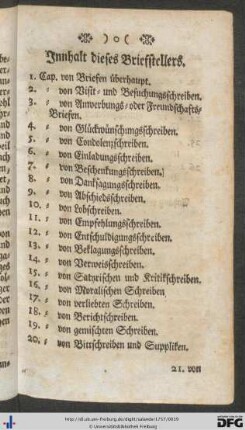 ) o (
Innhalt dieses Briefstellers.
1. Cap. von Briefen überhaupt.
2. " von Visit- und Besuchungsschreiben.
3. " von Anwerbungs- oder Freundschafts-
Briefen.
4. " von Glückwünschungsschreiben.
5. " von Condolenzschreiben.
6. " von Einladungsschreiben.
7. " von Beschenkungsschreiben.
8. " von Danksagungsschreiben.
9. " von Abschiedsschreiben.
10. " von Lobschreiben.
11. " von Empfehlungsschreiben.
12. " von Entschuldigungsschreiben.
13. " von Beklagungsschreiben.
14. " von Verweisschreiben.
15. " von Satyrischen und Kritikschreiben.
16. " von Moralischen Schreiben
17. " von verliebten Schreiben.
18. " von Berichtschreiben.
19. " von gemischten Schreiben.
20. " von Bittschreiben und Suppliken.
21. von
© Universitätsbibliothek Freiburg
DFG